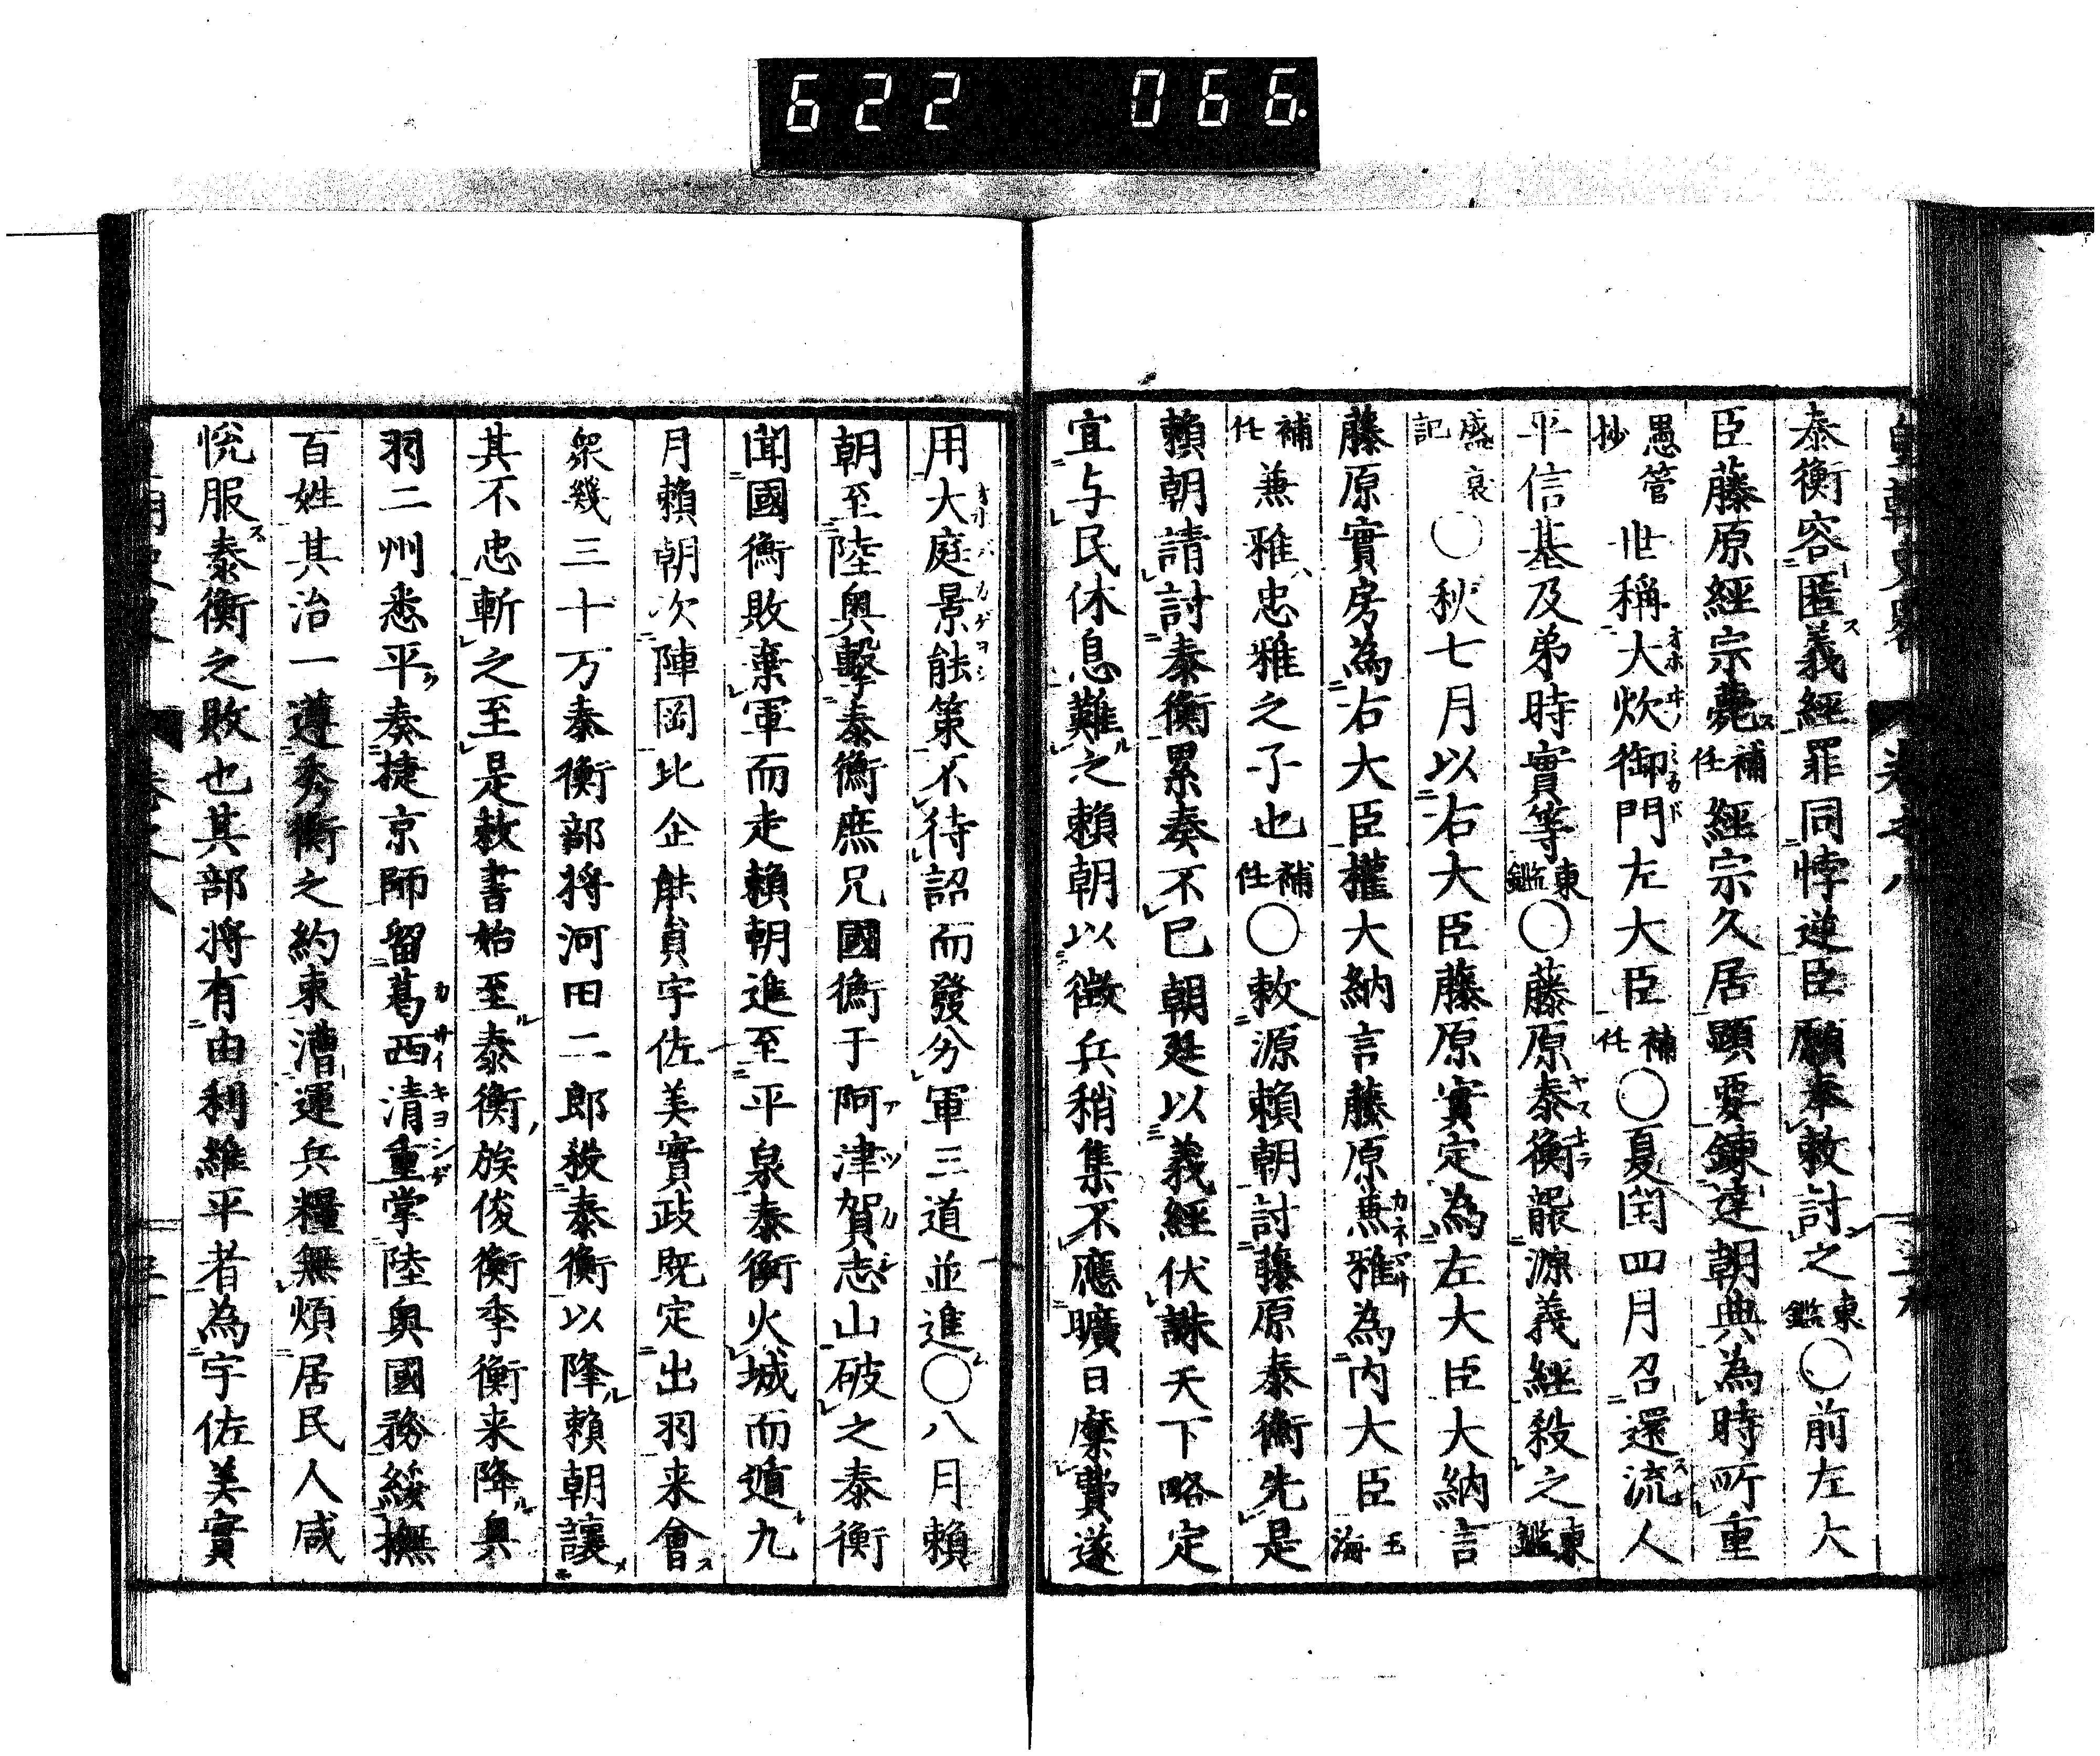 622 066
泰衡容匿義經罪同悖逆臣願奉敕討之東鑑○前左大
臣藤原經宗薨補任經宗久居顯要鍊達朝典為時所重
愚管抄世稱大炊御門左大臣補任○夏閏四月召還流人
平信基及弟時實等東鑑○藤原泰衡襲源義經殺之東鑑
盛衰記○秋七月以右大臣藤原實定為左大臣大納言
藤原實房為右大臣權大納言藤原兼雅為内大臣玉海
補任兼雅忠雅之子也補任○敕源賴朝討藤原泰衡先是
賴朝請討泰衡累奏不已朝廷以義經伏誅天下略定
宜与民休息難之賴朝以徵兵稍集不應曠日縻費遂
用大庭景能策不待詔而發分軍三道並進○八月賴
朝至陸奥擊泰衡庶兄國衡于阿津賀志山破之泰衡
聞國衡敗棄軍而走賴朝進至平泉泰衡火城而遁九
月賴朝次陣岡比企能員宇佐美實政既定出羽来會
衆幾三十万泰衡部将河田二郎殺泰衡以降賴朝讓
其不忠斬之至是敕書始至泰衡族俊衡季衡来降奥
羽二州悉平奏捷京師留葛西清重掌陸奥國務綏撫
百姓其治一遵秀衡之約束漕運兵糧無煩居民人咸
悅服泰衡之敗也其部将有由利維平者為宇佐美實